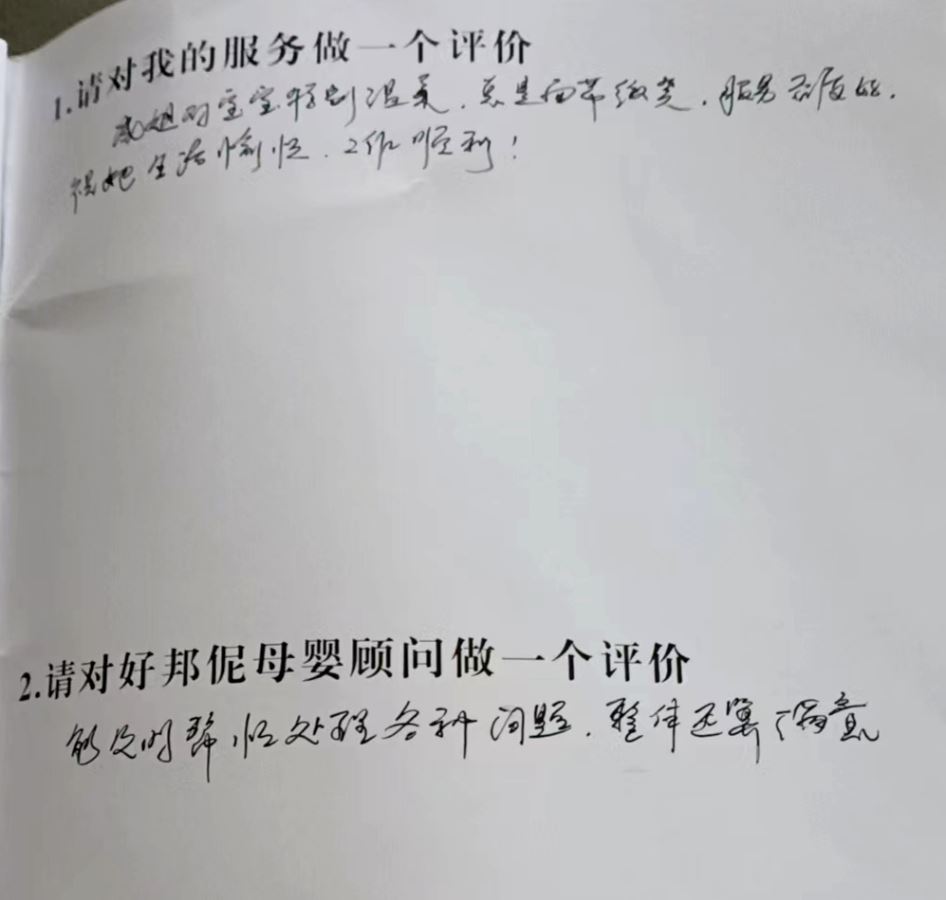 1.请对我的服务做一个评价
姐对宝宝特别温柔,总是面带微笑,服务态度好.
祝她生活愉快,工作顺利!
2.请对好邦伲母婴顾问做一个评价
能及时帮忙处理各种问题,整体还算满意